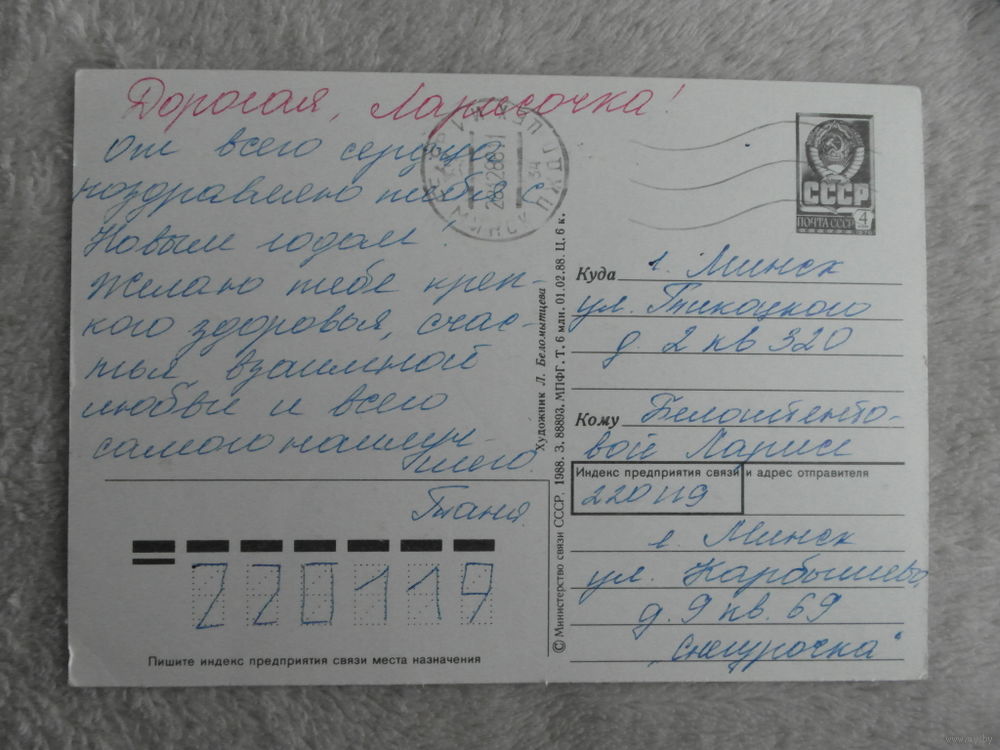 Дорогая, Ларисочка!
от всего сердца
поздравляю тебя с
Новым годом!
Желаю тебе креп-
кого здоровья, счас-
тья взаимной
любви и всего
самого наилуч-
шего.
Таня.
220119
Пишите индекс предприятия связи места назначения
МИНСК
281288
34
СССР
ПОЧТА СССР
4
© Министерство связи СССР, 1988. З. 88893. МПФГ. Т. 6 млн. 01.02.88. Ц. 6 к.
Художник Л. Беломытцева
Куда г. Минск
ул. Тикоцкого
д. 2 кв 320
Кому Белоштенто-
вой Ларисе
Индекс предприятия связи и адрес отправителя
220119
г. Минск
ул. Карбышева,
д. 9 кв. 69
„Снегурочка"
www.ay.by